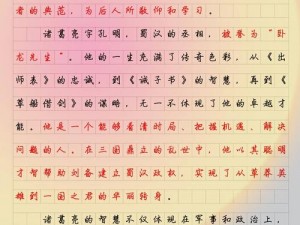 者的典范，为后人所敬仰和学习。
诸葛亮字孔明，蜀汉的丞相，被誉为“卧
龙先生”。他的一生充满了传奇色彩，从《出
师表》的忠诚，到《诫子书》的智慧，再到《
草船借剑》的谋略，无一不体现了他的卓越才
能。他是一个能够看清时局、把握机遇、解决
问题的人，在三国鼎立的乱世中，他以其聪明
才智帮助刘备建立蜀汉政权，实现了从草莽英
雄到一国之君的华丽转身。
诸葛亮的智慧不仅体现在军事和政治上，